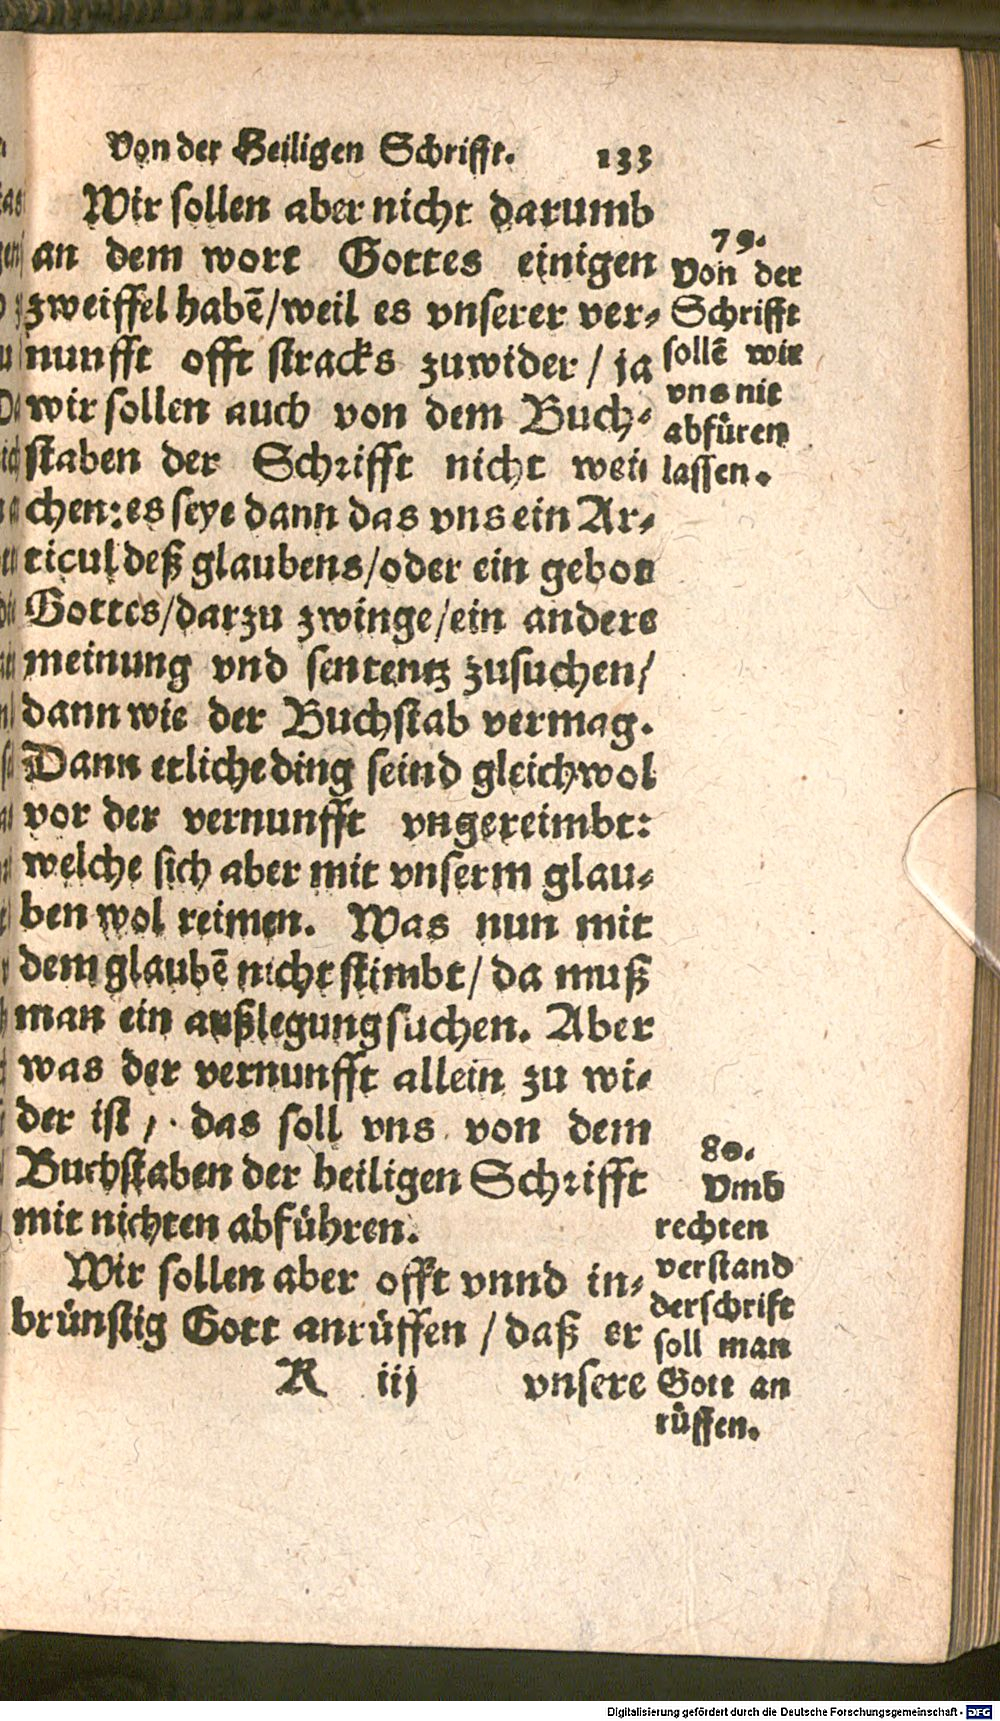 Von der Heiligen Schrifft. 133
Wir sollen aber nicht darumb
an dem wort Gottes einigen
zweiffel habē/weil es vnserer ver-
nunfft offt stracks zuwider / ja
wir sollen auch von dem Buch-
staben der Schrifft nicht wei
chen: es seye dann das vns ein Ar-
ticul deß glaubens/oder ein gebott
Gottes/darzu zwinge/ein andere
meinung vnd sententz zusuchen/
dann wie der Buchstab vermag.
Dann etliche ding seind gleichwol
vor der vernunfft vngereimbt:
welche sich aber mit vnserm glau-
ben wol reimen. Was nun mit
dem glaubē nicht stimbt/ da muß
man ein außlegung suchen. Aber
was der vernunfft allein zu wi-
der ist / das soll vns von dem
Buchstaben der heiligen Schrifft
mit nichten abführen.
Wir sollen aber offt vnnd in-
brünstig Gott anrüffen / daß er
R iij vnsere
79.
Von der
Schrifft
sollē wir
vns nit
abfüren
lassen.
80.
Vmb
rechten
verstand
der schrift
soll man
Gott an
rüffen.
Digitalisierung gefördert durch die Deutsche Forschungsgemeinschaft - DFG